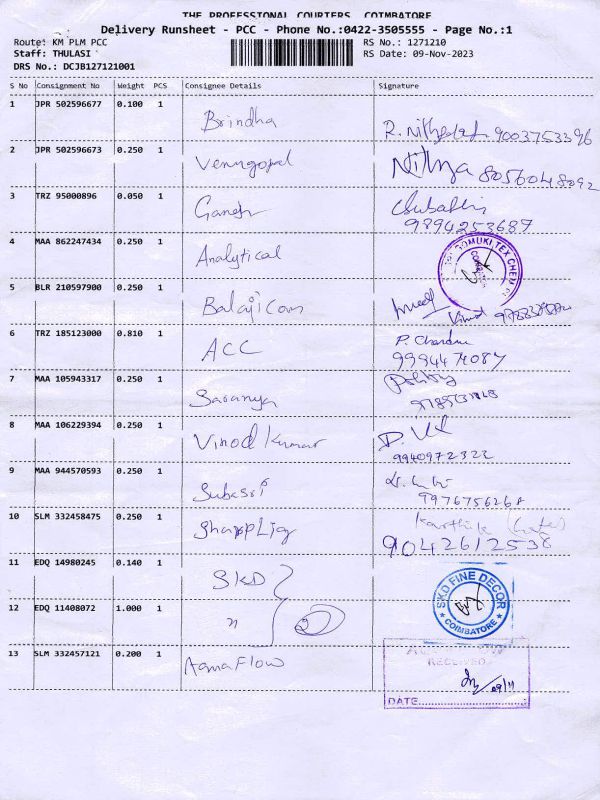 THE PROFESSIONAL COURIERS, COIMBATORE
Delivery Runsheet - PCC - Phone No.:0422-3505555 - Page No.:1
Route: KM PLM PCC RS No.: 1271210
Staff: THULASI RS Date: 09-Nov-2023
DRS No.: DCJB127121001
S No Consignment No Weight PCS Consignee Details Signature
1 JPR 502596677 0.100 1 Brindha 9003753396
2 JPR 502596673 0.250 1 Venugopal Nithya 8056048092
3 TRZ 95000896 0.050 1 Ganesh
9894253687
4 MAA 862247434 0.250 1 Analytical TEX CHEM
5 BLR 210597900 0.250 1 Balaji Cans
6 TRZ 185123000 0.810 1 ACC P. Chandru
9994474087
7 MAA 105943317 0.250 1 Saranya
8 MAA 106229394 0.250 1 Vinod Kumar
9940972322
9 MAA 944570593 0.250 1 Subasri
10 SLM 332458475 0.250 1 Sharpplig Karthik (Gate)
9042612538
11 EDQ 14980245 0.140 1 SKD SKD FINE DECOR
COIMBATORE
12 EDQ 11408072 1.000 1 " 2
13 SLM 332457121 0.200 1 AquaFlow
RECEIVED
09/11
DATE